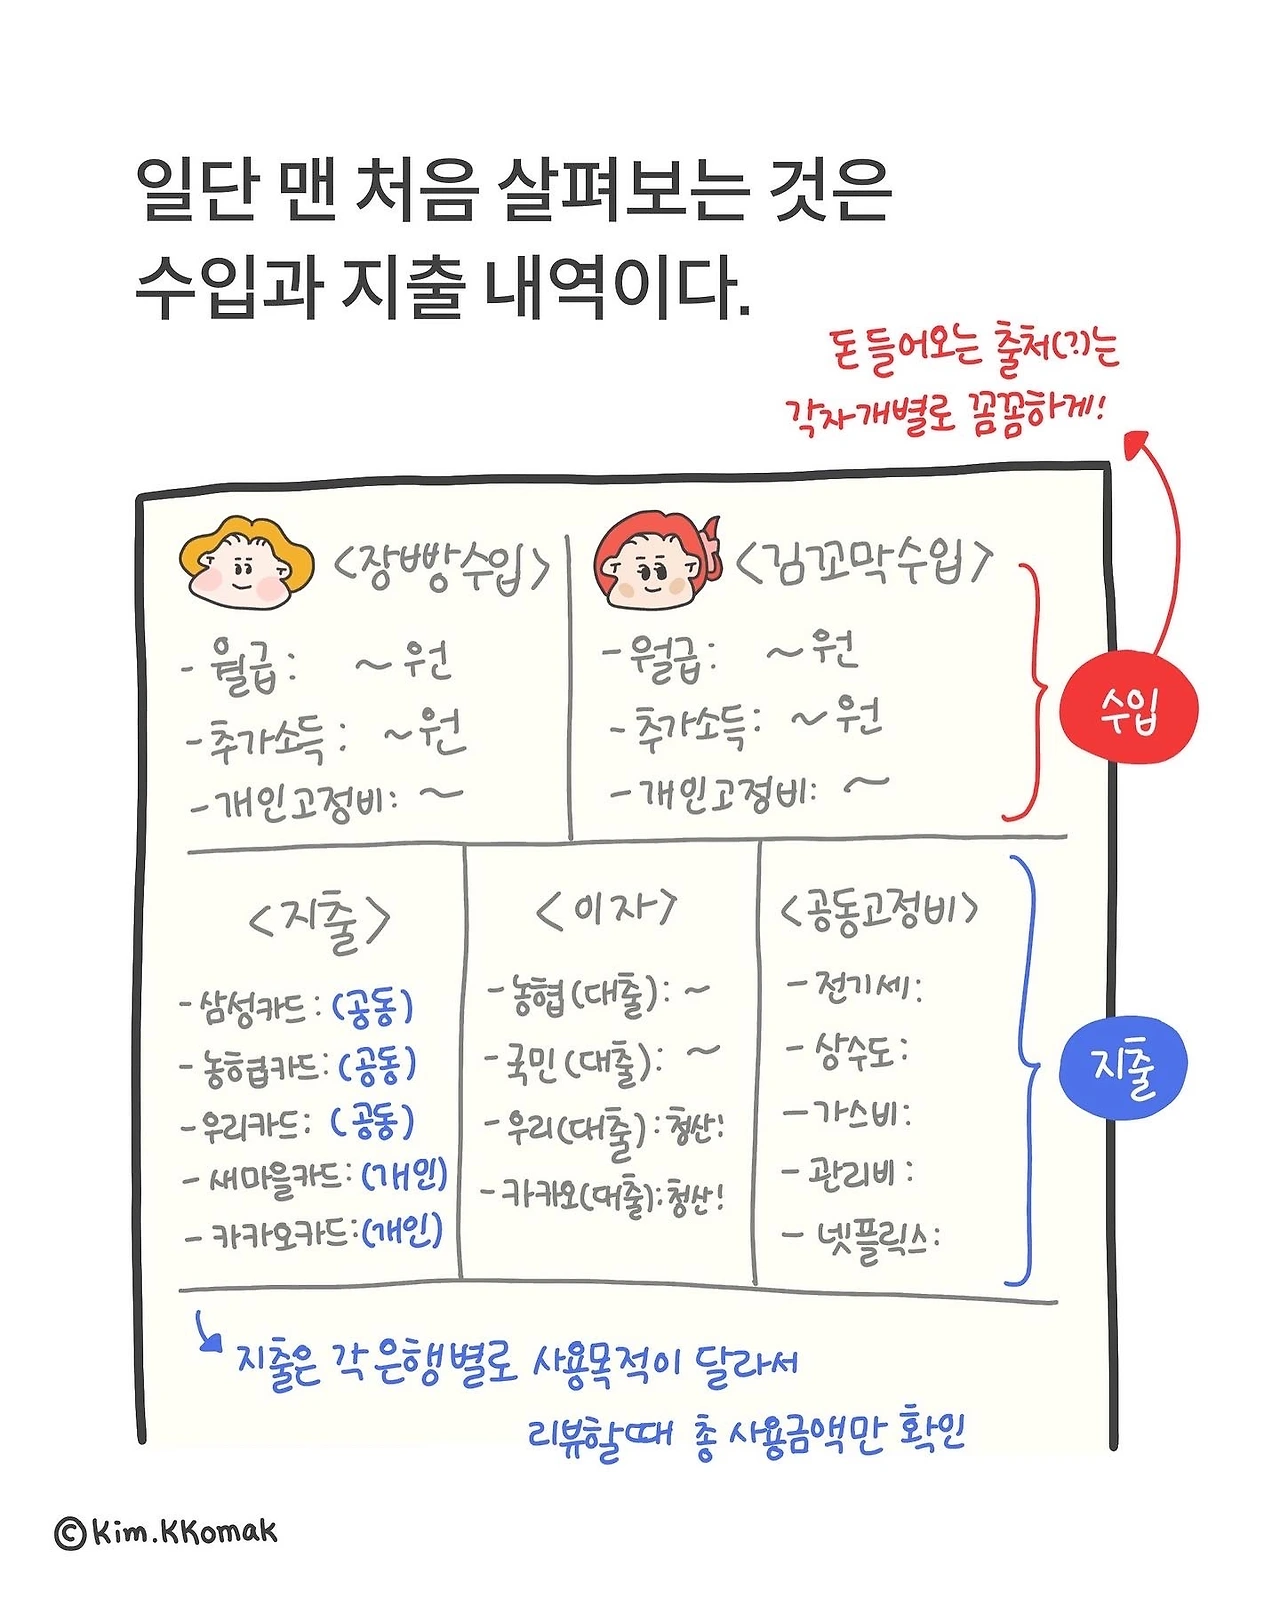 일단 맨 처음 살펴보는 것은
수입과 지출 내역이다.
돈 들어오는 출처(?)는
각자 개별로 꼼꼼하게!
<장빵수입>
- 월급: ~원
- 추가소득: ~원
- 개인고정비: ~
<김꼬막수입>
- 월급: ~원
- 추가소득: ~원
- 개인고정비: ~
수입
<지출>
- 삼성카드: (공동)
- 농협카드: (공동)
- 우리카드: (공동)
- 새마을카드: (개인)
- 카카오카드: (개인)
<이자>
- 농협(대출): ~
- 국민(대출): ~
- 우리(대출): 청산!
- 카카오(대출): 청산!
<공동고정비>
- 전기세:
- 상수도:
- 가스비:
- 관리비:
- 넷플릭스:
지출
지출은 각 은행별로 사용목적이 달라서
리뷰할때 총 사용금액만 확인
©Kim.KKomak